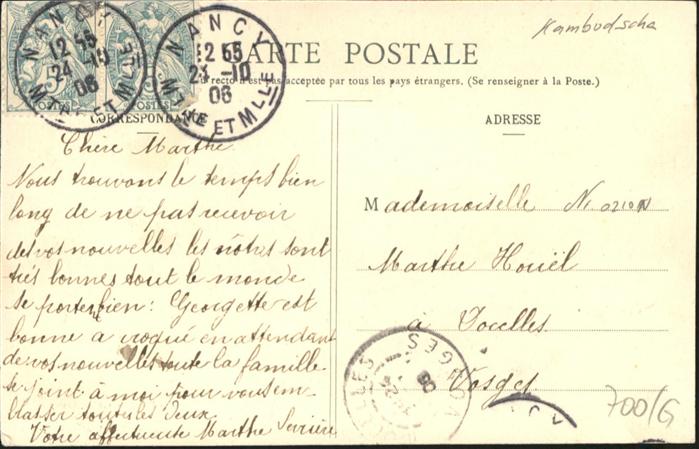 Kambodscha
NANCY
12 55
24 -10
06
Mthe ET Mlle
POSTES
NANCY
12 55
23 -10
06
Mthe ET Mlle
POSTES
CARTE POSTALE
du recto n'est pas acceptée par tous les pays étrangers. (Se renseigner à la Poste.)
CORRESPONDANCE
Chère Marthe
Nous trouvons le temps bien
long de ne pas recevoir
de vos nouvelles les nôtres sont
très bonnes tout le monde
se porte bien : Georgette est
bonne a croqué en attendant
de vos nouvelles toute la famille
se joint à moi pour vous em
brasser toutes les deux
Votre affectueuse Marthe
ADRESSE
Mademoiselle
Marthe Houël
à Jocelles
Vosges
VOSGES
06
700/G